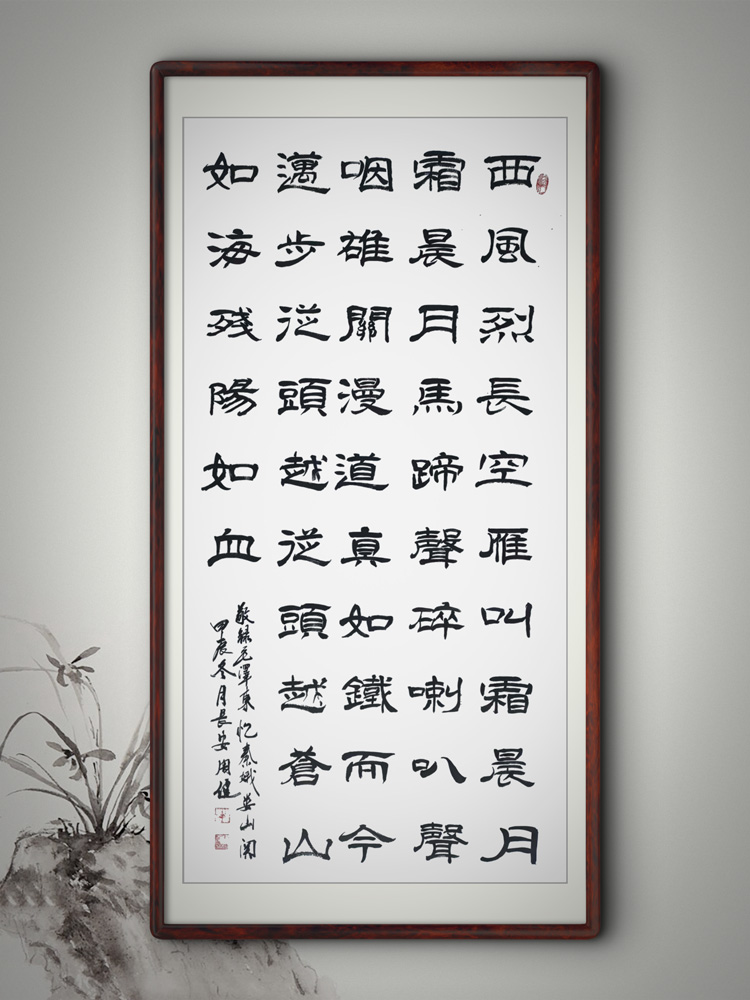 西風烈長空雁叫霜晨月
霜晨月馬蹄聲碎喇叭聲
咽雄關漫道真如鐵而今
邁步從頭越從頭越蒼山
如海残陽如血
敬録毛澤東忆秦娥娄山関
甲辰冬月長安周健